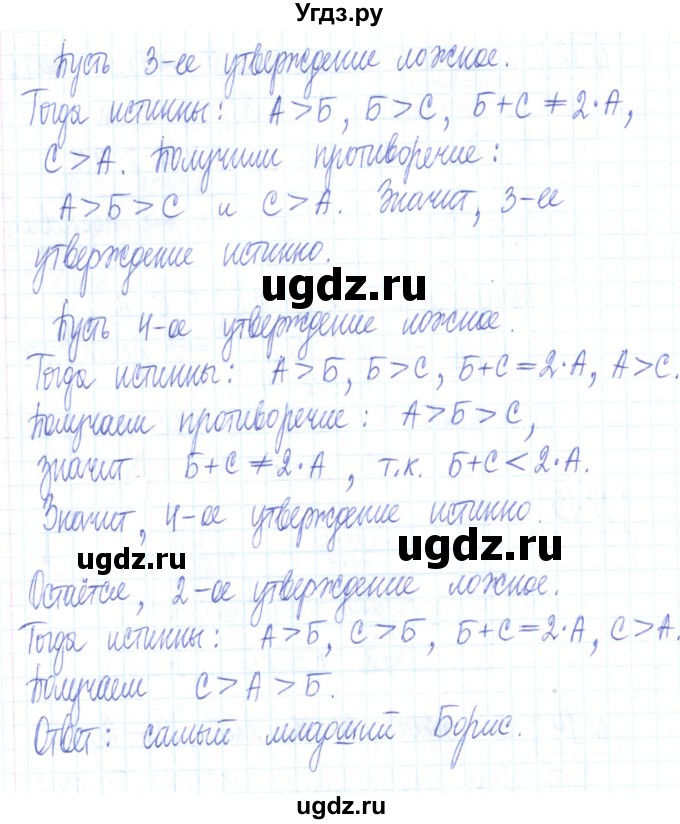 Угдз.ру
Пусть 3-ее утверждение ложное.
Тогда истинны: А>Б, Б>С, Б+С≠2·А,
С>А. Получили противоречие:
А>Б>С и С>А. Значит, 3-ее
утверждение истинно.
ugdz.ru
Пусть 4-ое утверждение ложное.
Тогда истинны: А>Б, Б>С, Б+С=2·А, А>С.
Получаем противоречие: А>Б>С,
значит Б+С≠2·А, т.к. Б+С<2·А.
Значит, 4-ое утверждение истинно.
ugdz.ru
ugdz.ru
Остаётся, 2-ое утверждение ложное.
Тогда истинны: А>Б, С>Б, Б+С=2·А, С>А.
Получаем С>А>Б.
Ответ: самый младший Борис.
ugdz.ru